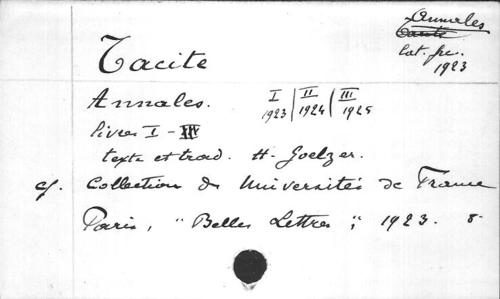 Annales
Tacite
lat. fr.
1923
Tacite
Annales. I 1923 | II 1924 | III 1925
livres I - XII
texte et trad. H. Goelzer.
cf. Collection des Universités de France
Paris, "Belles Lettres"; 1923. 8°